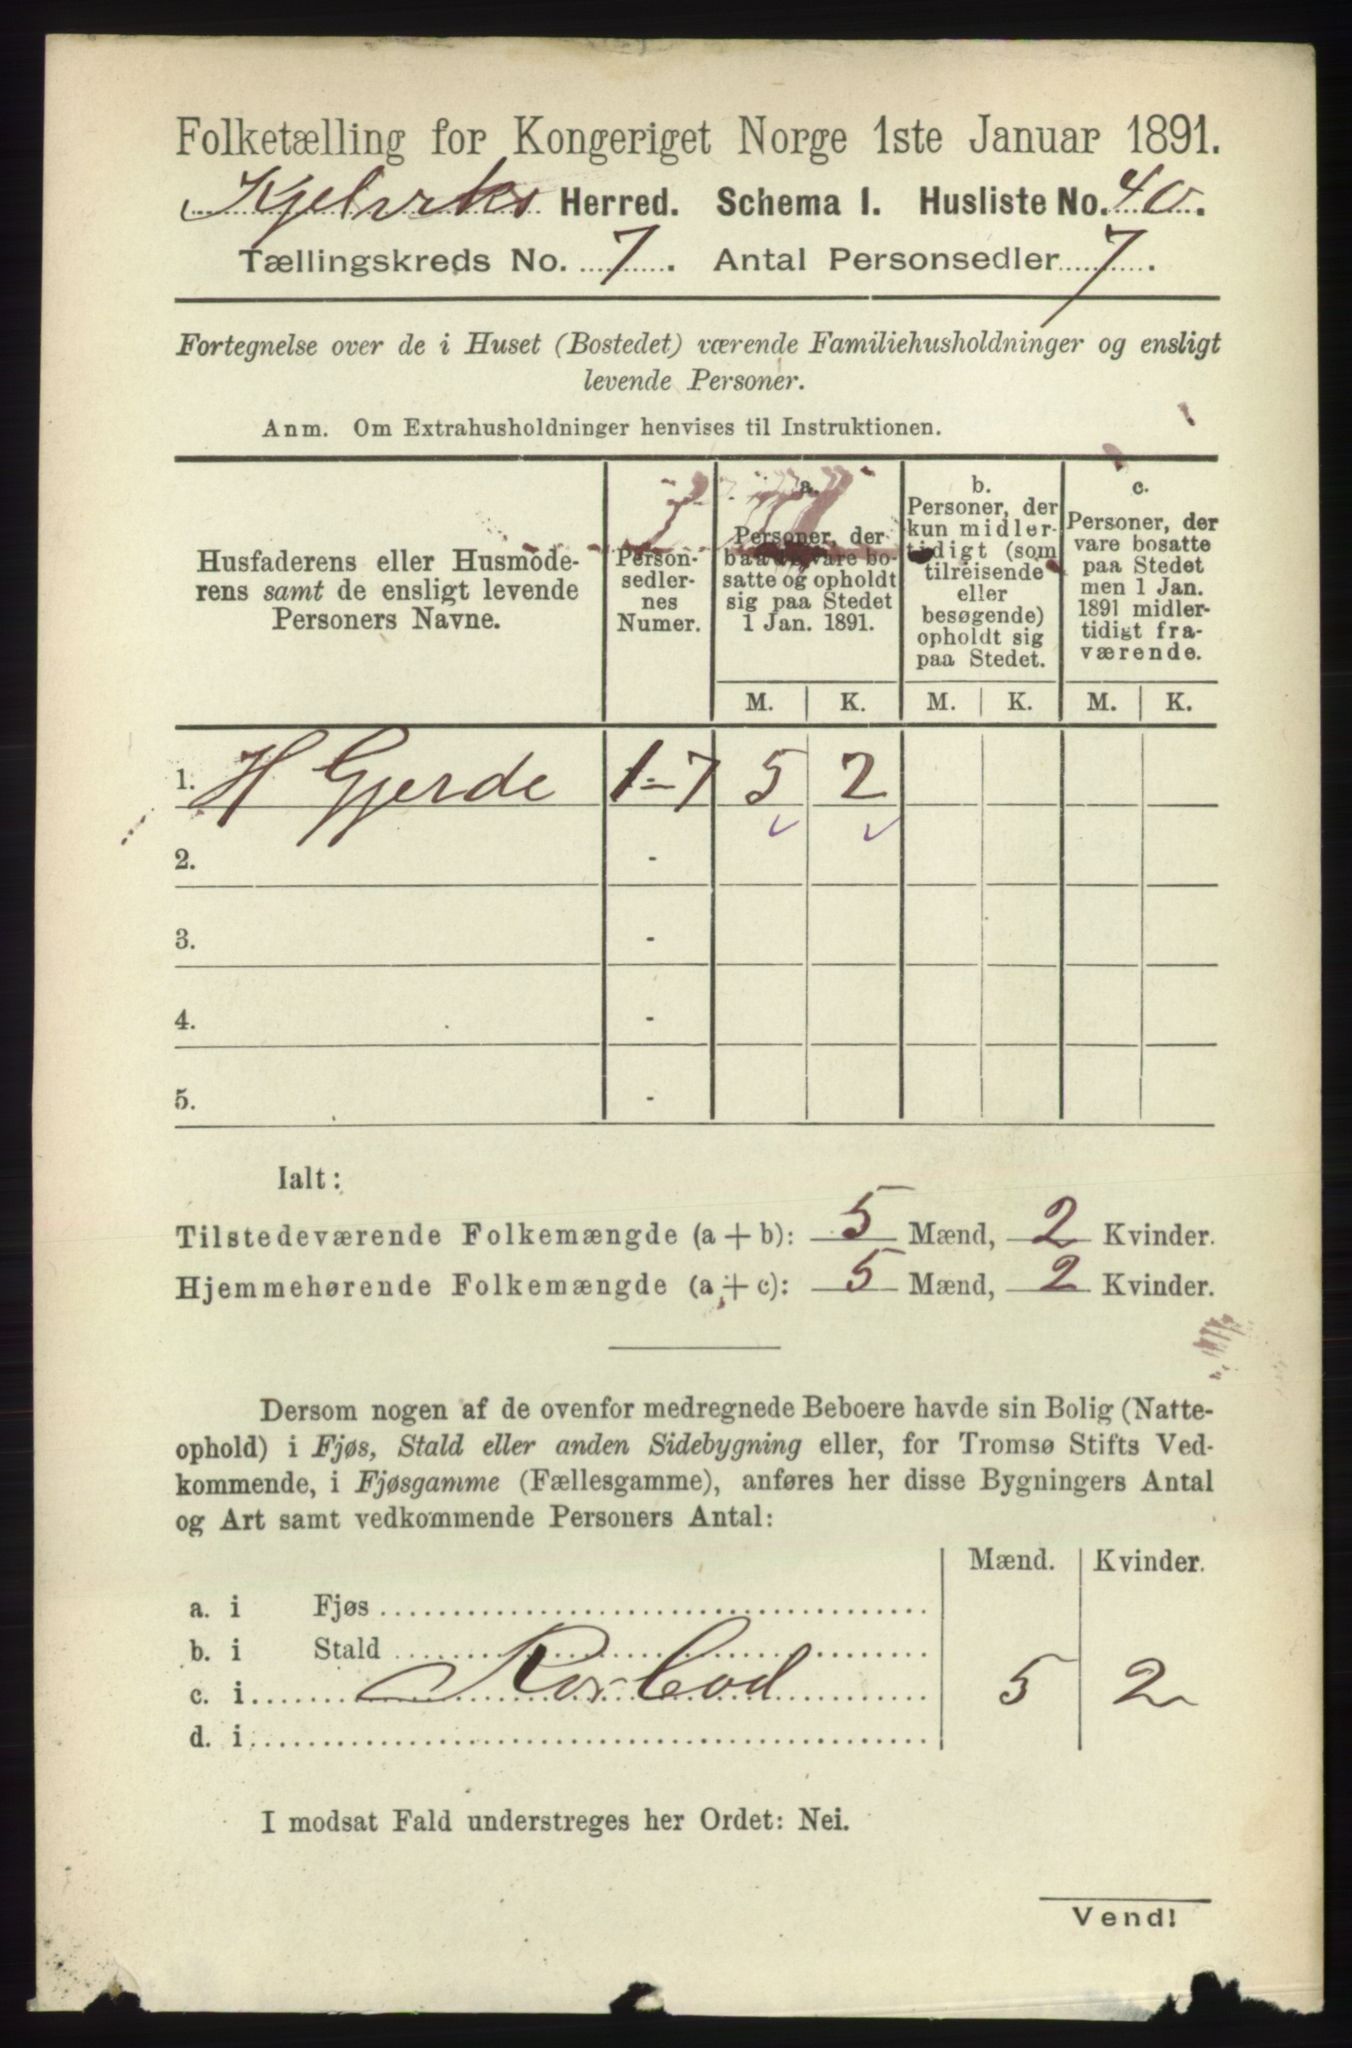 Folketælling for Kongeriget Norge 1ste Januar 1891.
Kjelviks Herred. Schema 1. Husliste No. 40.
Tællingskreds No. 7. Antal Personsedler 7.
Fortegnelse over de i Huset (Bostedet) værende Familiehusholdninger og ensligt
levende Personer.
Anm. Om Extrahusholdninger henvises til Instruktionen.
Husfaderens eller Husmode-
rens samt de ensligt levende
Personers Navne.
Person-
sedler-
nes
Numer.
a.
Personer, der
baade vare bo-
satte og opholdt
sig paa Stedet
1 Jan. 1891.
b.
Personer, der
kun midler-
tidigt (som
tilreisende
eller
besøgende)
opholdt sig
paa Stedet.
c.
Personer, der
vare bosatte
paa Stedet
men 1 Jan.
1891 midler-
tidigt fra-
værende.
M. K. M. K. M. K.
1. H Gjerde 1-7 5 2
2. -
3. -
4. -
5. -
Ialt:
Tilstedeværende Folkemængde (a + b): 5 Mænd, 2 Kvinder.
Hjemmehørende Folkemængde (a + c): 5 Mænd, 2 Kvinder.
Dersom nogen af de ovenfor medregnede Beboere havde sin Bolig (Natte-
ophold) i Fjøs, Stald eller anden Sidebygning eller, for Tromsø Stifts Ved-
kommende, i Fjøsgamme (Fællesgamme), anføres her disse Bygningers Antal
og Art samt vedkommende Personers Antal:
Mænd. Kvinder.
a. i Fjøs
b. i Stald
c. i Rorbod 5 2
d. i
I modsat Fald understreges her Ordet: Nei.
Vend!